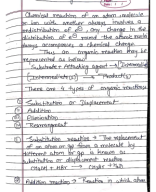 Chemical reaction of an atom molecule
or ion with another always involves a
redistribution of e⊖, any change in the
distribution of e⊖ around the atoms that
always accompany a chemical change.
Thus an organic reaction
represented as below:
Substrate + Attacking agent → [Intermediate]
[Intermediate] → Product(s)
There are 4 types of organic reactions:
Substitution or Displacement
Addition
Elimination
Rearrangement
Substitution reaction → The replacement
of an atom or gp from a molecule by
different atom or gp is known as
substitution or displacement reaction
Addition reaction → Reaction in which atom